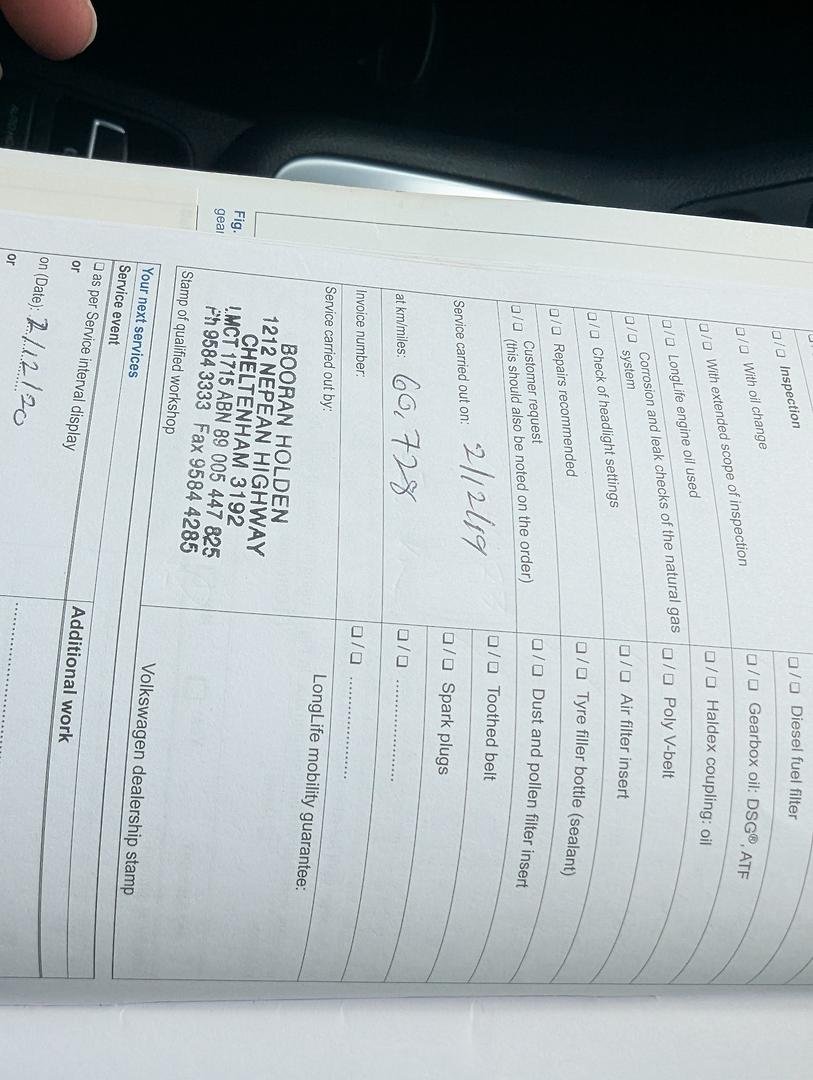 Inspection
With oil change
With extended scope of inspection
LongLife engine oil used
Corrosion and leak checks of the natural gas
system
Check of headlight settings
Repairs recommended
Customer request
(this should also be noted on the order)
Service carried out on: 2/12/19
at km/miles: 60,728
Invoice number:
Service carried out by:
BOORAN HOLDEN
1212 NEPEAN HIGHWAY
CHELTENHAM 3192
LMCT 1715 ABN 89 005 447 825
Ph 9584 3333 Fax 9584 4285
Stamp of qualified workshop
Diesel fuel filter
Gearbox oil: DSG®, ATF
Haldex coupling: oil
Poly V-belt
Air filter insert
Tyre filler bottle (sealant)
Dust and pollen filter insert
Toothed belt
Spark plugs
LongLife mobility guarantee:
Volkswagen dealership stamp
Your next services
Service event
as per Service interval display
or
on (Date): 2/12/20
or
Additional work
Fig.
gear